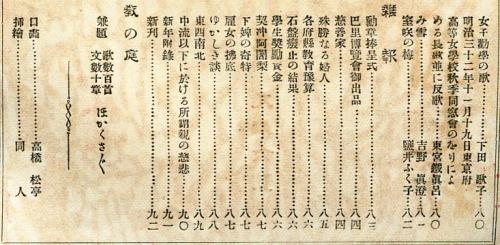 女子勸學の歌……下田歌子 八〇
明治三十二年十一月十九日東京府
高等女學校秋季同窓會のをりによ
める長歌並に反歌……東宮鐵眞呂 八〇
み雪……吉野眞澄 八一
室咲の梅……鹽井ふく子 八二
雜報
勳章捧呈式……八三
巴里博覽會御出品……八四
慈善家……八四
殊勝なる婦人……八五
各府縣敎育豫算……八六
石盤癈止の結果……八六
學生奬勵資金……八六
契沖阿闍梨……八七
下婢の奇特……八七
雇女の拂底……八七
ゆかしき談……八八
東西南北……八九
中流以下に於ける所謂親の慈悲……九〇
新年附錄……九一
新刊……九二
敎の庭
兼題 歌數百首 文數十章 ほかくさ〲
口畵……高橋松亭
挿繪……同人